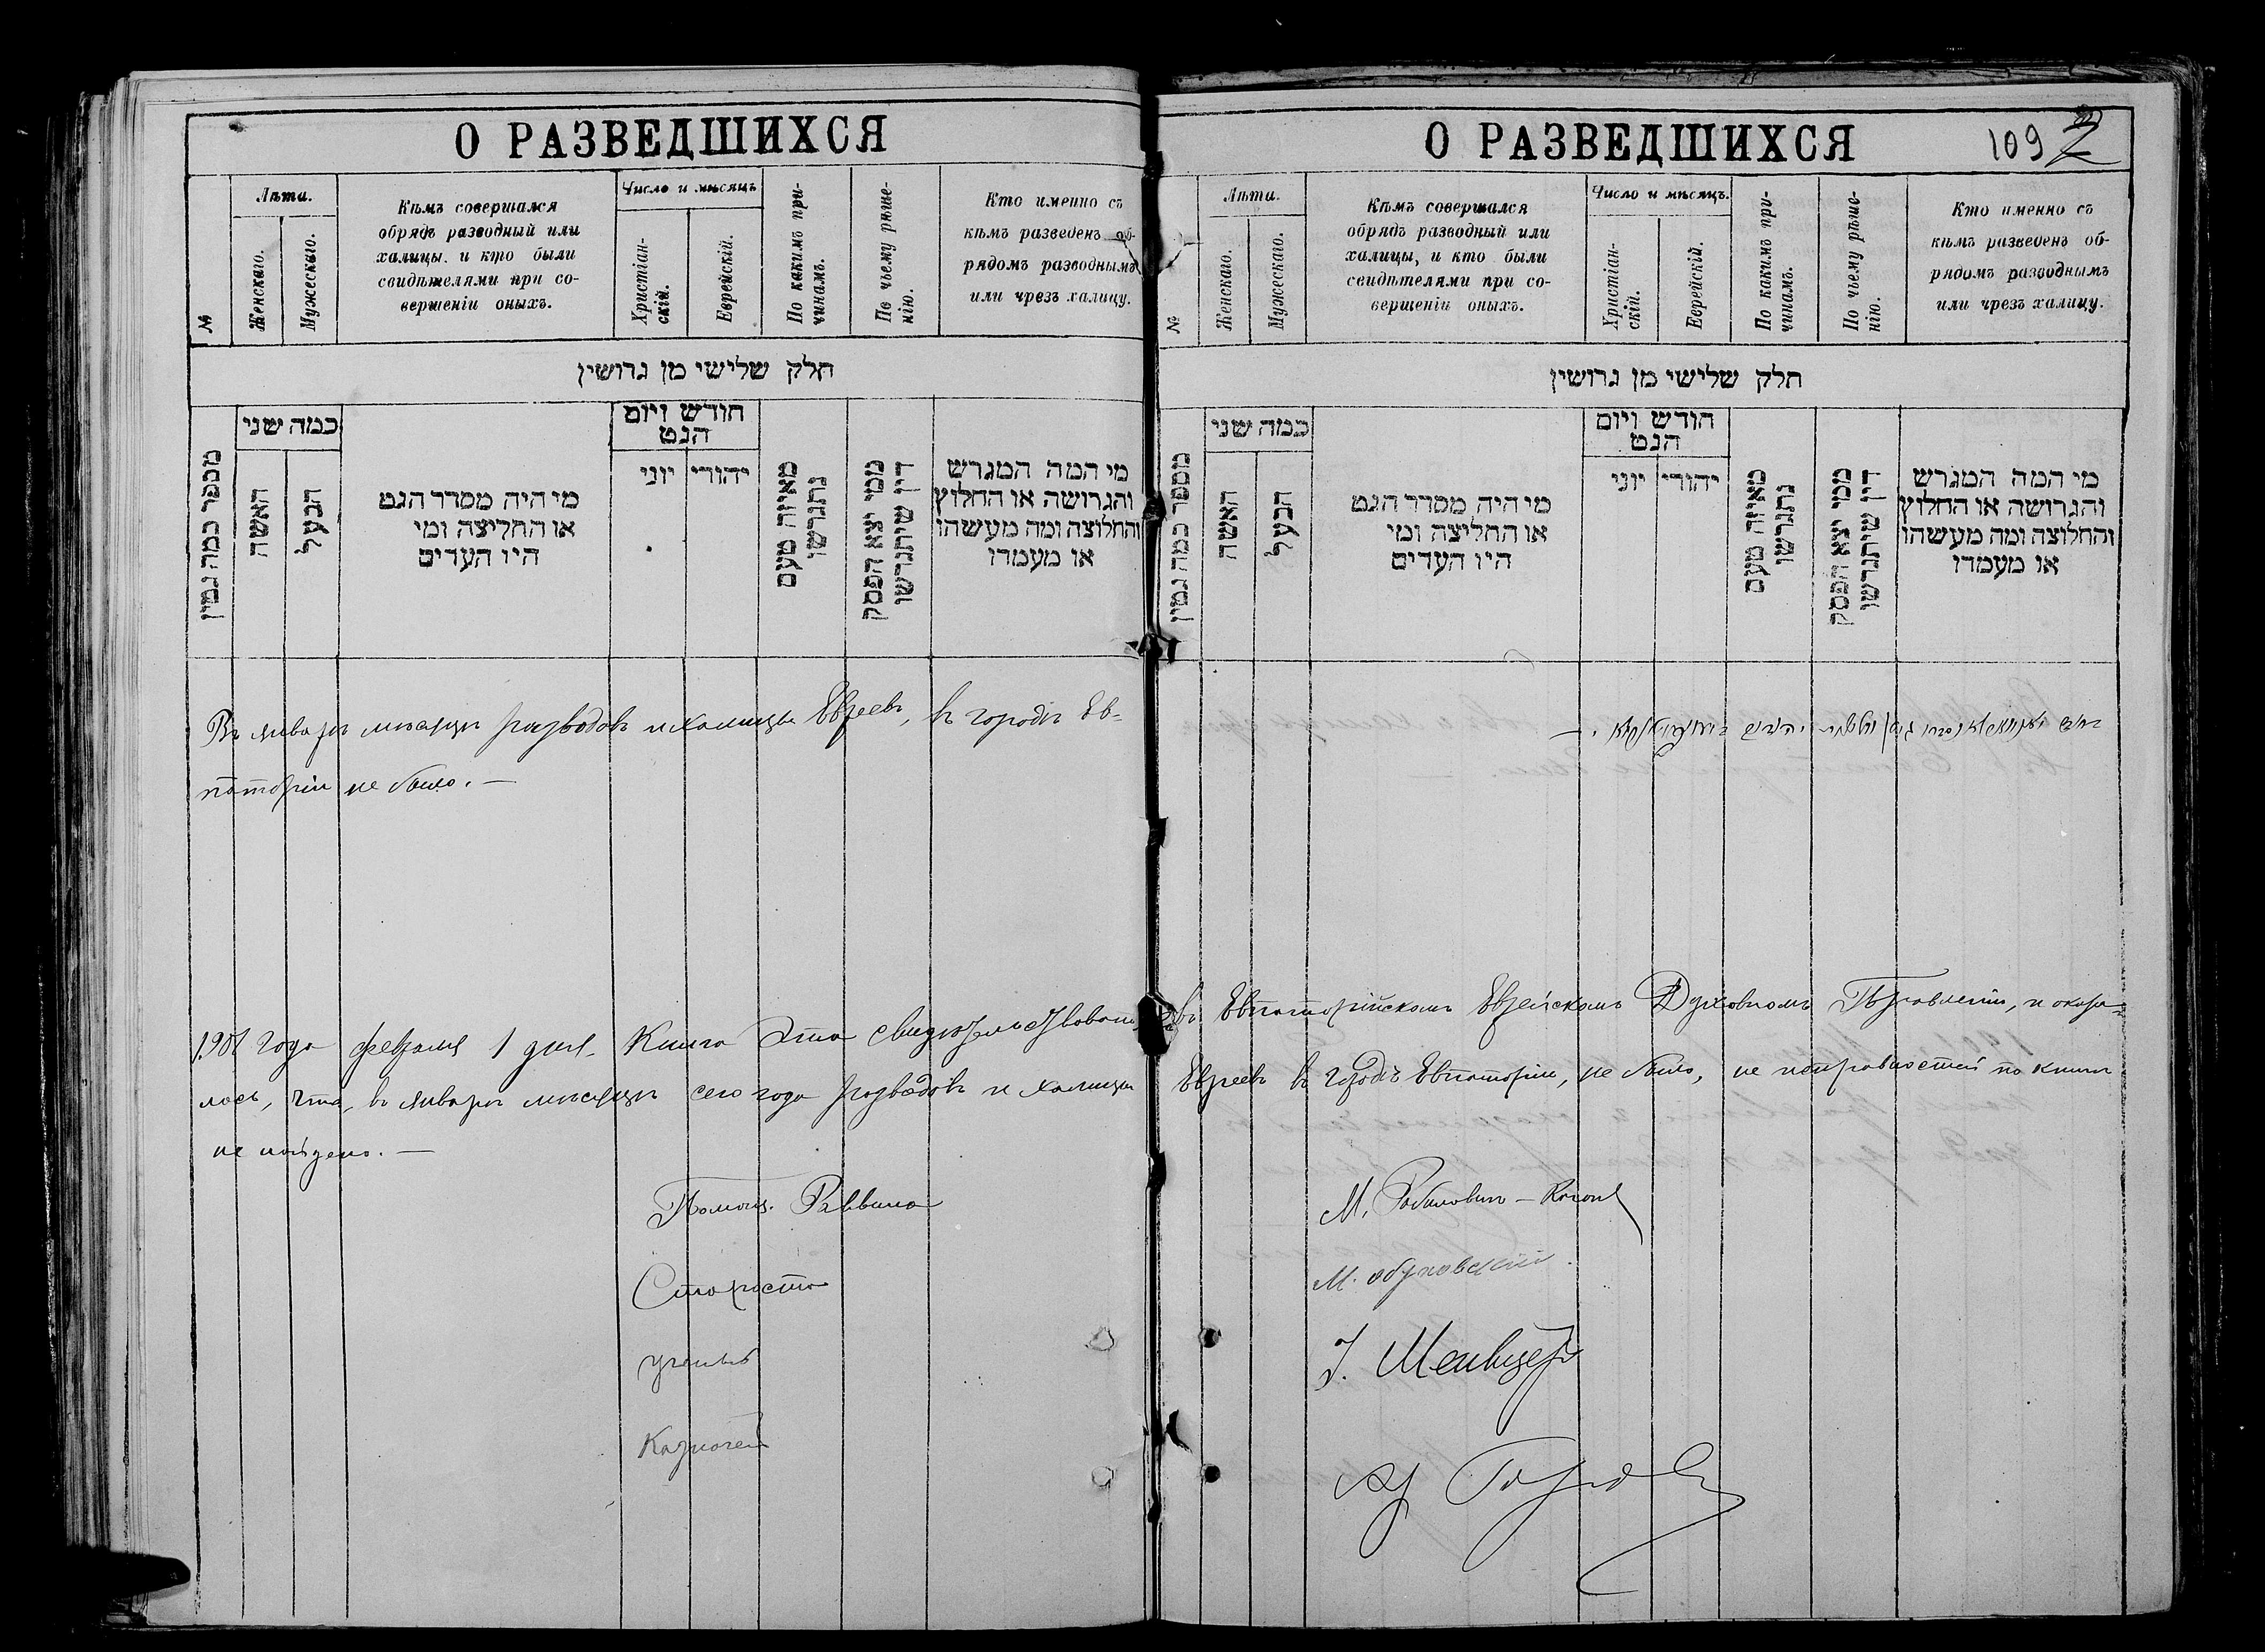 О РАЗВЕДШИХСЯ
№
Лѣта.
Женскаго.
Мужескаго.
Кѣмъ совершался
обрядъ разводный или
халицы, и кто были
свидѣтелями при со-
вершеніи оныхъ.
Число и мѣсяцъ
Христіан-
скій.
Еврейскій.
По какимъ при-
чинамъ.
По чьему рѣше-
нію.
Кто именно съ
кѣмъ разведенъ об-
рядомъ разводнымъ
или чрезъ халицу.
חלק שלישי מן גרושין
מספר כמה גטין
כמה שני
האשה
הבעל
מי היה מסדר הגט
או החליצה ומי
היו העדים
חודש ויום
הגט
יוני
יהודי
מאיזה טעם
נתגרשו
ממי יצא הפסק
דין שיתגרשו
מי המה המגרש
והגרושה או החלוץ
והחלוצה ומה מעשהו
או מעמדו
Въ январѣ мѣсяцѣ разводовъ и халицы Евреевъ, въ городѣ Ев-
паторіи не было. —
О РАЗВЕДШИХСЯ
109
№
Лѣта.
Женскаго.
Мужескаго.
Кѣмъ совершался
обрядъ разводный или
халицы, и кто были
свидѣтелями при со-
вершеніи оныхъ.
Число и мѣсяцъ.
Христіан-
скій.
Еврейскій.
По какимъ при-
чинамъ.
По чьему рѣше-
нію.
Кто именно съ
кѣмъ разведенъ об-
рядомъ разводнымъ
или чрезъ халицу.
חלק שלישי מן גרושין
מספר כמה גטין
כמה שני
האשה
הבעל
מי היה מסדר הגט
או החליצה ומי
היו העדים
חודש ויום
הגט
יוני
יהודי
מאיזה טעם
נתגרשו
ממי יצא הפסק
דין שיתגרשו
מי המה המגרש
והגרושה או החלוץ
והחלוצה ומה מעשהו
או מעמדו
1901 года февраля 1 дня. Книга эта свидѣтельствована въ Евпаторійскомъ Еврейскомъ Духовномъ Правленіи, и оказа-
лось, что, въ январѣ мѣсяцѣ сего года разводовъ и халицы Евреевъ въ городѣ Евпаторіи, не было, не исправностей по книги
не найдено. —
Помощ. Раввина М. Рабинович – Коган
Староста М. Обуховский
ученый
Казначей